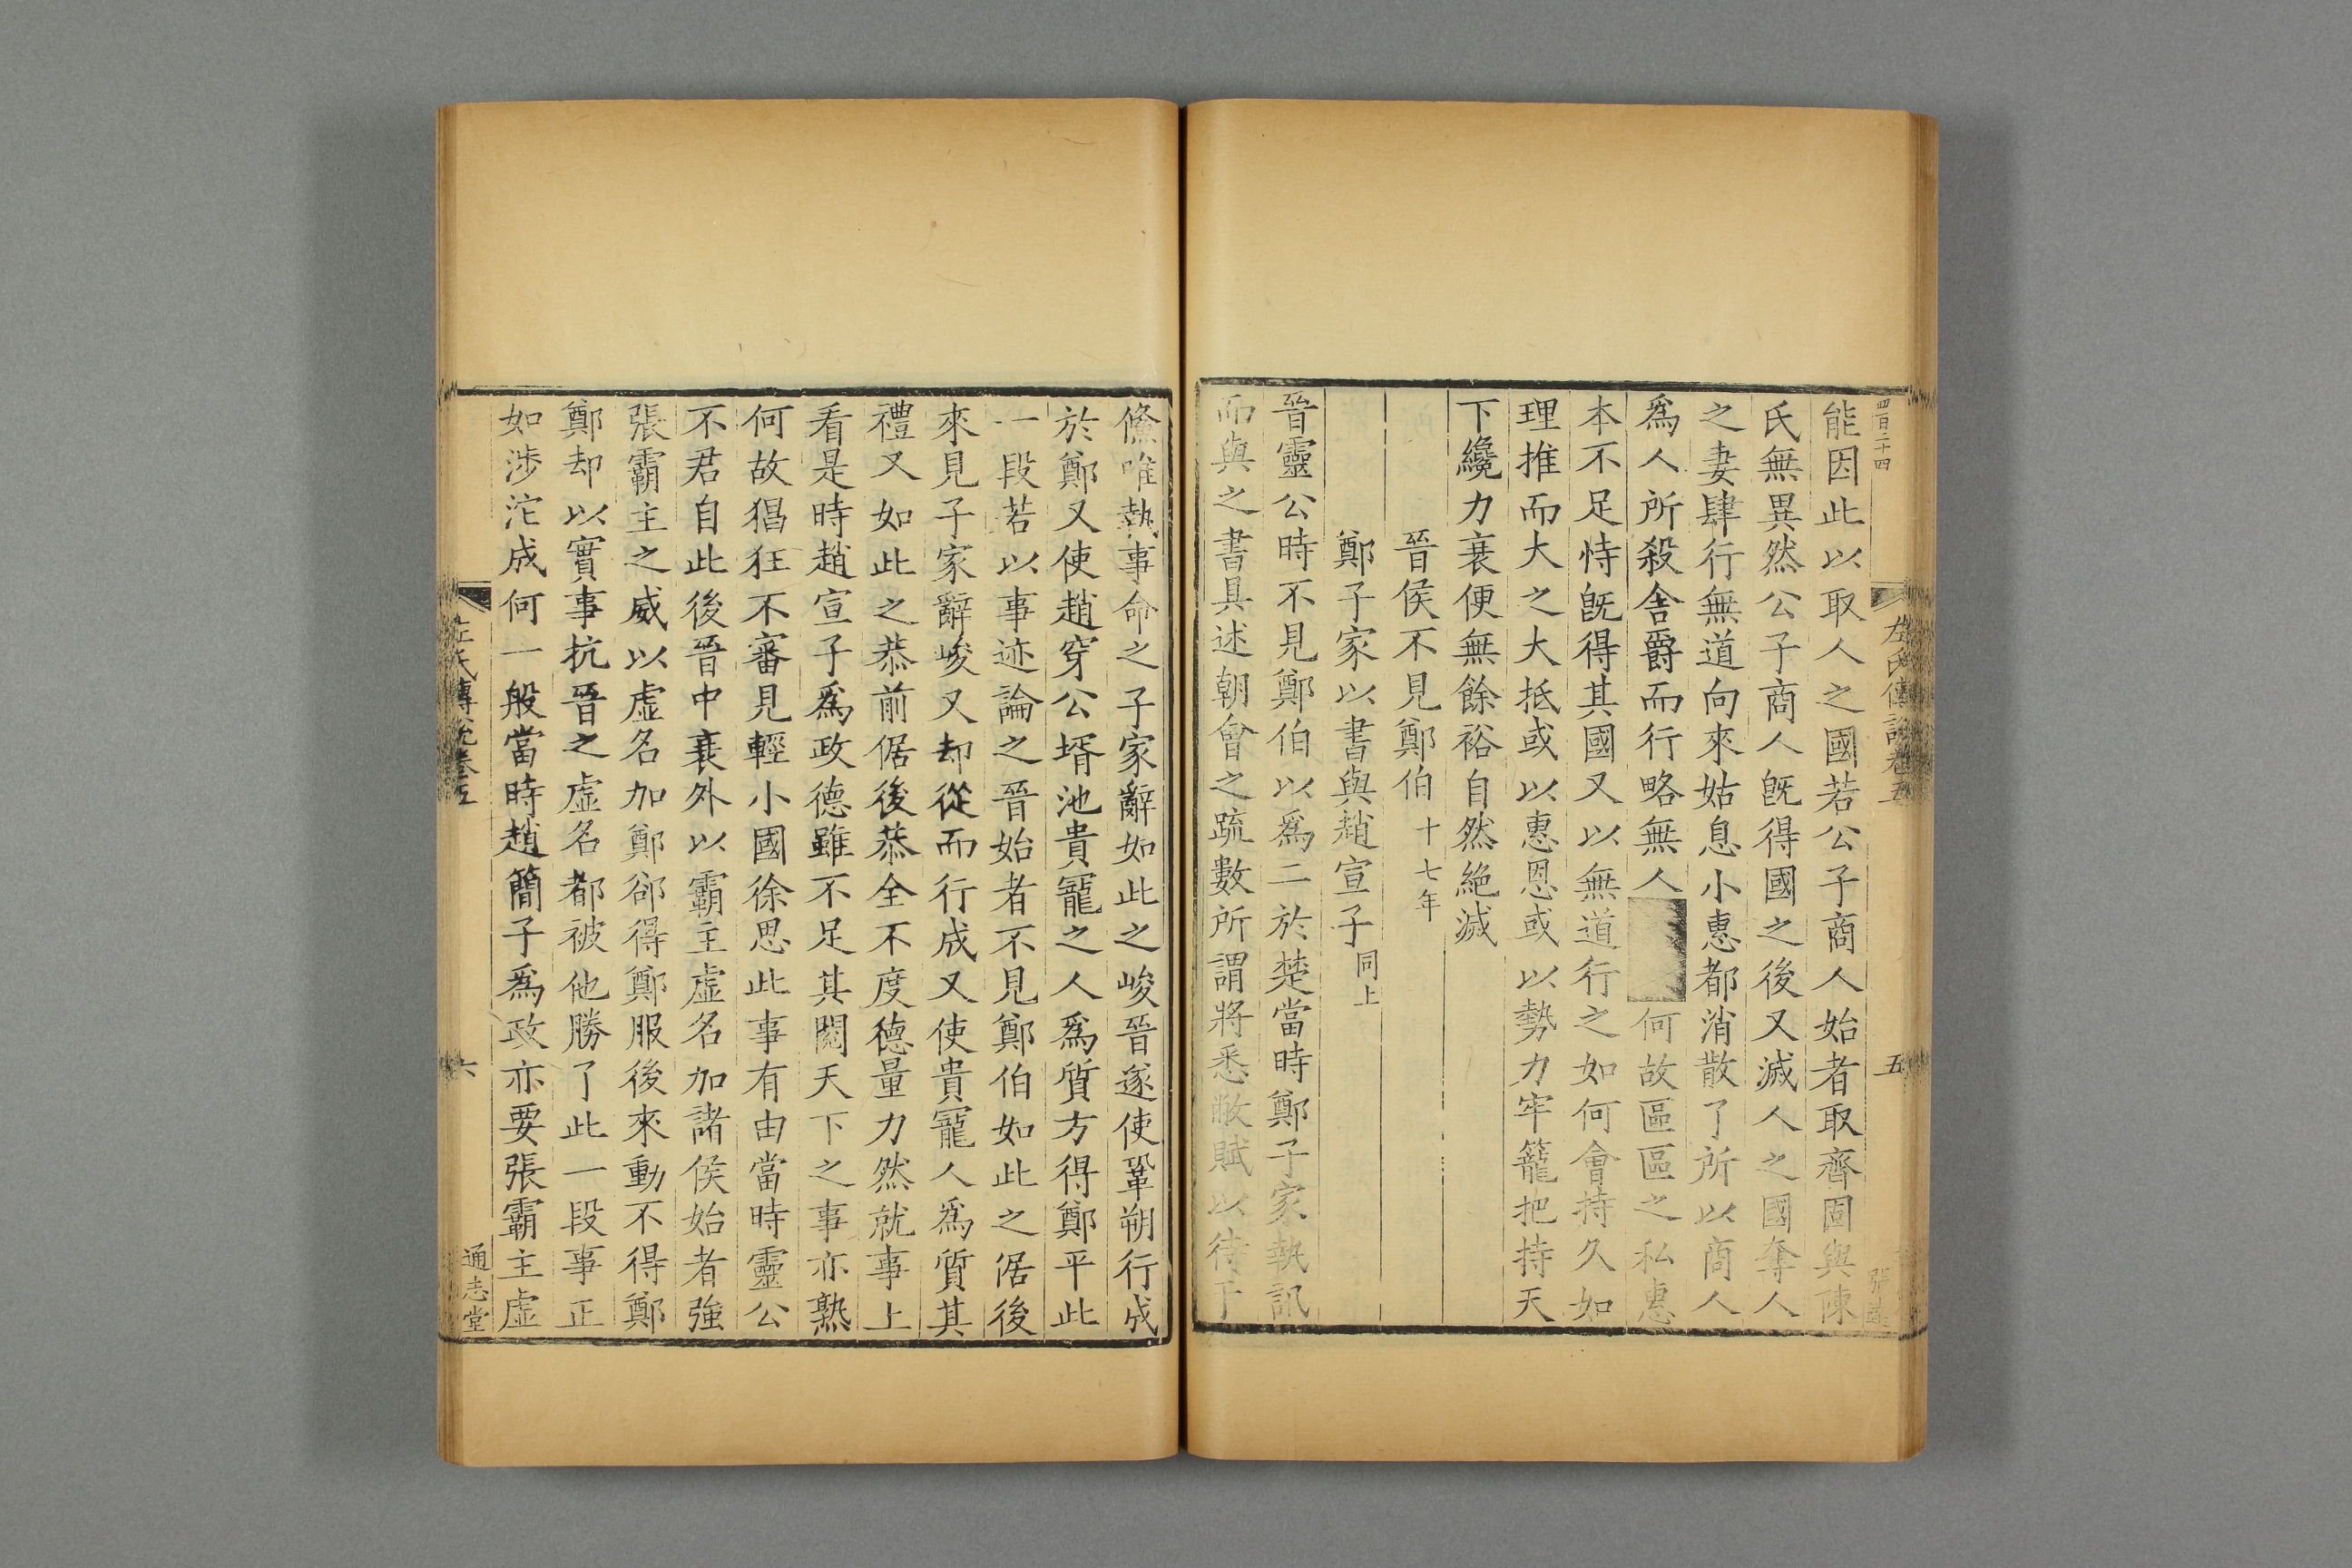 四百二十四
左氏傳說卷五
五
能因此以取人之國若公子商人始者取齊固與陳
氏無異然公子商人旣得國之後又滅人之國奪人
之妻肆行無道向來姑息小惠都消散了所以商人
爲人所殺舍爵而行略無人何故區區之私惠
本不足恃旣得其國又以無道行之如何會持久如
理推而大之大抵或以惠恩或以勢力牢籠把持天
下纔力衰便無餘裕自然絶滅
晉侯不見鄭伯十七年
鄭子家以書與趙宣子同上
晉靈公時不見鄭伯以爲二於楚當時鄭子家執訊
而與之書具述朝會之疏數所謂將悉敝賦以待于
鯈唯執事命之子家辭如此之峻晉遂使鞏朔行成
於鄭又使趙穿公壻池貴寵之人爲質方得鄭平此
一段若以事迹論之晉始者不見鄭伯如此之倨後
來見子家辭峻又却從而行成又使貴寵人爲質其
禮又如此之恭前倨後恭全不度德量力然就事上
看是時趙宣子爲政德雖不足其閱天下之事亦熟
何故猖狂不審見輕小國徐思此事有由當時靈公
不君自此後晉中衰外以霸主虛名加諸侯始者強
張霸主之威以虛名加鄭郤得鄭服後來動不得鄭
鄭却以實事抗晉之虛名都被他勝了此一段事正
如涉沱成何一般當時趙簡子爲政亦要張霸主虛
左氏傳說卷五
六
通志堂